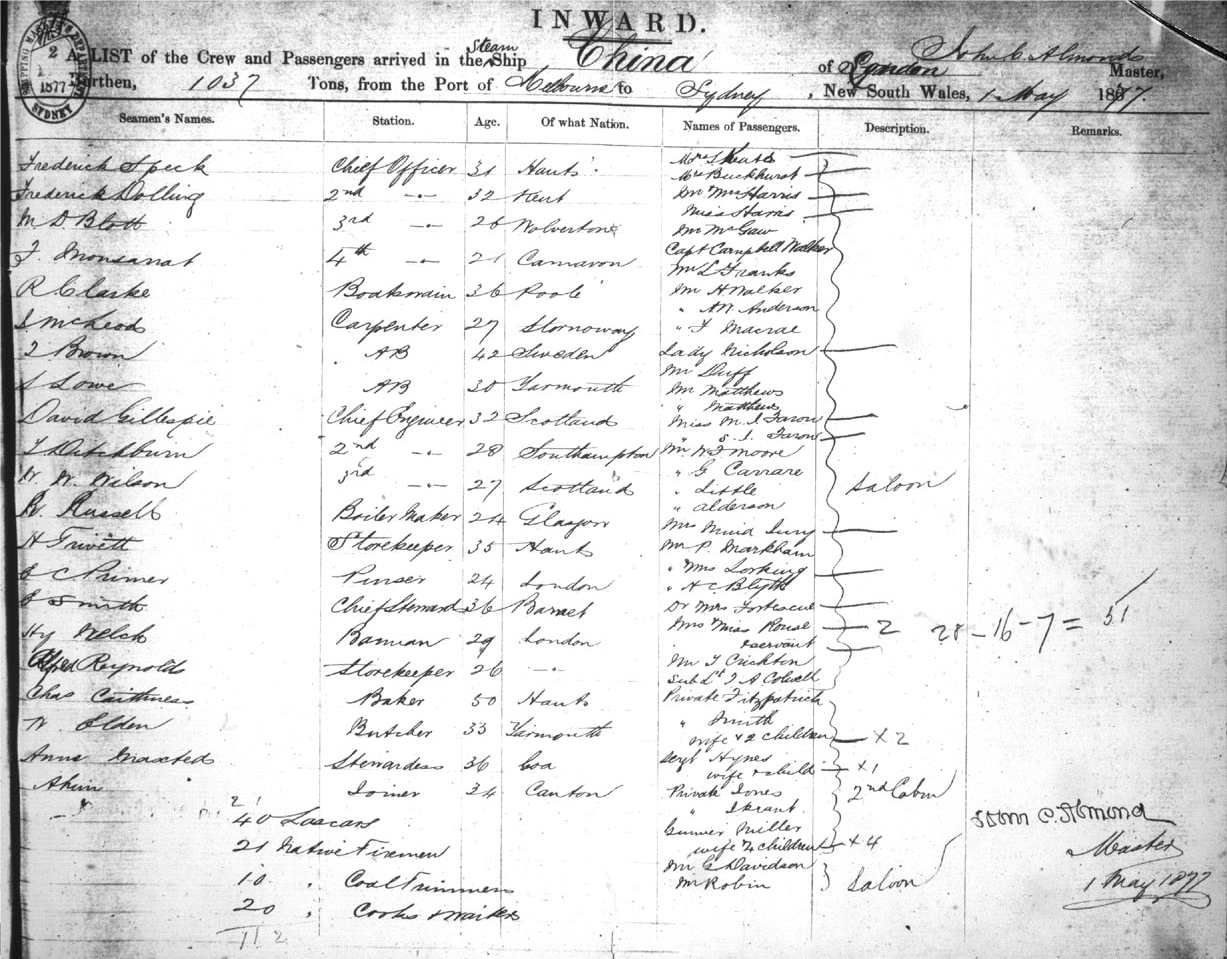 INWARD.
SHIPPING MASTER'S DEPARTMENT
2
1877
SYDNEY
A LIST of the Crew and Passengers arrived in the Steam Ship China of London John C. Almond Master,
Burthen, 1037 Tons, from the Port of Melbourne to Sydney, New South Wales, 1 May 1877.
Seamen's Names. Station. Age. Of what Nation. Names of Passengers. Description. Remarks.
Frederick Speck Chief Officer 31 Hants
Frederick Dolling 2nd -"- 32 Kent
M D Blott 3rd -"- 26 Wolverton
F. Monsarrat 4th -"- 21 Carnarvon
R Clarke Boatswain 36 Poole
McLeod Carpenter 27 Stornoway
Brown AB 42 Sweden
S Lowe AB 30 Yarmouth
David Gillespie Chief Engineer 32 Scotland
Ditchburn 2nd -"- 28 Southampton
W. W. Wilson 3rd -"- 27 Scotland
R Russell Boiler Maker 24 Glasgow
H Trivett Storekeeper 35 Hants
C Primer Purser 24 London
Smith Chief Steward 36 Barnet
Hy Welch Barman 29 London
Alfred Reynold Storekeeper 26 -"-
Chas Caithness Baker 50 Hants
W. Elden Butcher 33 Yarmouth
Anne Maxted Stewardess 36 Goa
Akim Joiner 34 Canton
21
40 Lascars
21 Native Firemen
10 " Coal Trimmers
20 " Cooks & Waiters
112
Mrs Skeats
Mrs Buckhurst
Mr Mrs Harris
Miss Harris
Mr McGaw
Capt Campbell Walker
Mr L Franks
Mr H Walker
" Anderson
" F Macrae
Lady Nicholson
Mr Duff
Mr Matthews
" Matthews
Miss M. I. Faron
" S. I. Faron
Mr W F Moore
" G Carrare
" Little
" Alderson
Mrs
Mr P. Markham
" Mrs Lorking
" H C Blyth
Dr Mrs Fortescue
Mrs Miss Rouse 2
& servant
Mr Crichton
Sub Lt A Colwell
Saloon
Private Fitzpatrick
" Smith
wife & 2 children x 2
Sergt Hynes
wife & child x 1
Private Jones
"
Gunner Miller
wife 4 children x 4
2nd Cabin
Mr G Davidson
Mr Robin
Saloon
28 - 16 - 7 = 51
John C. Almond
Master
1 May 1877